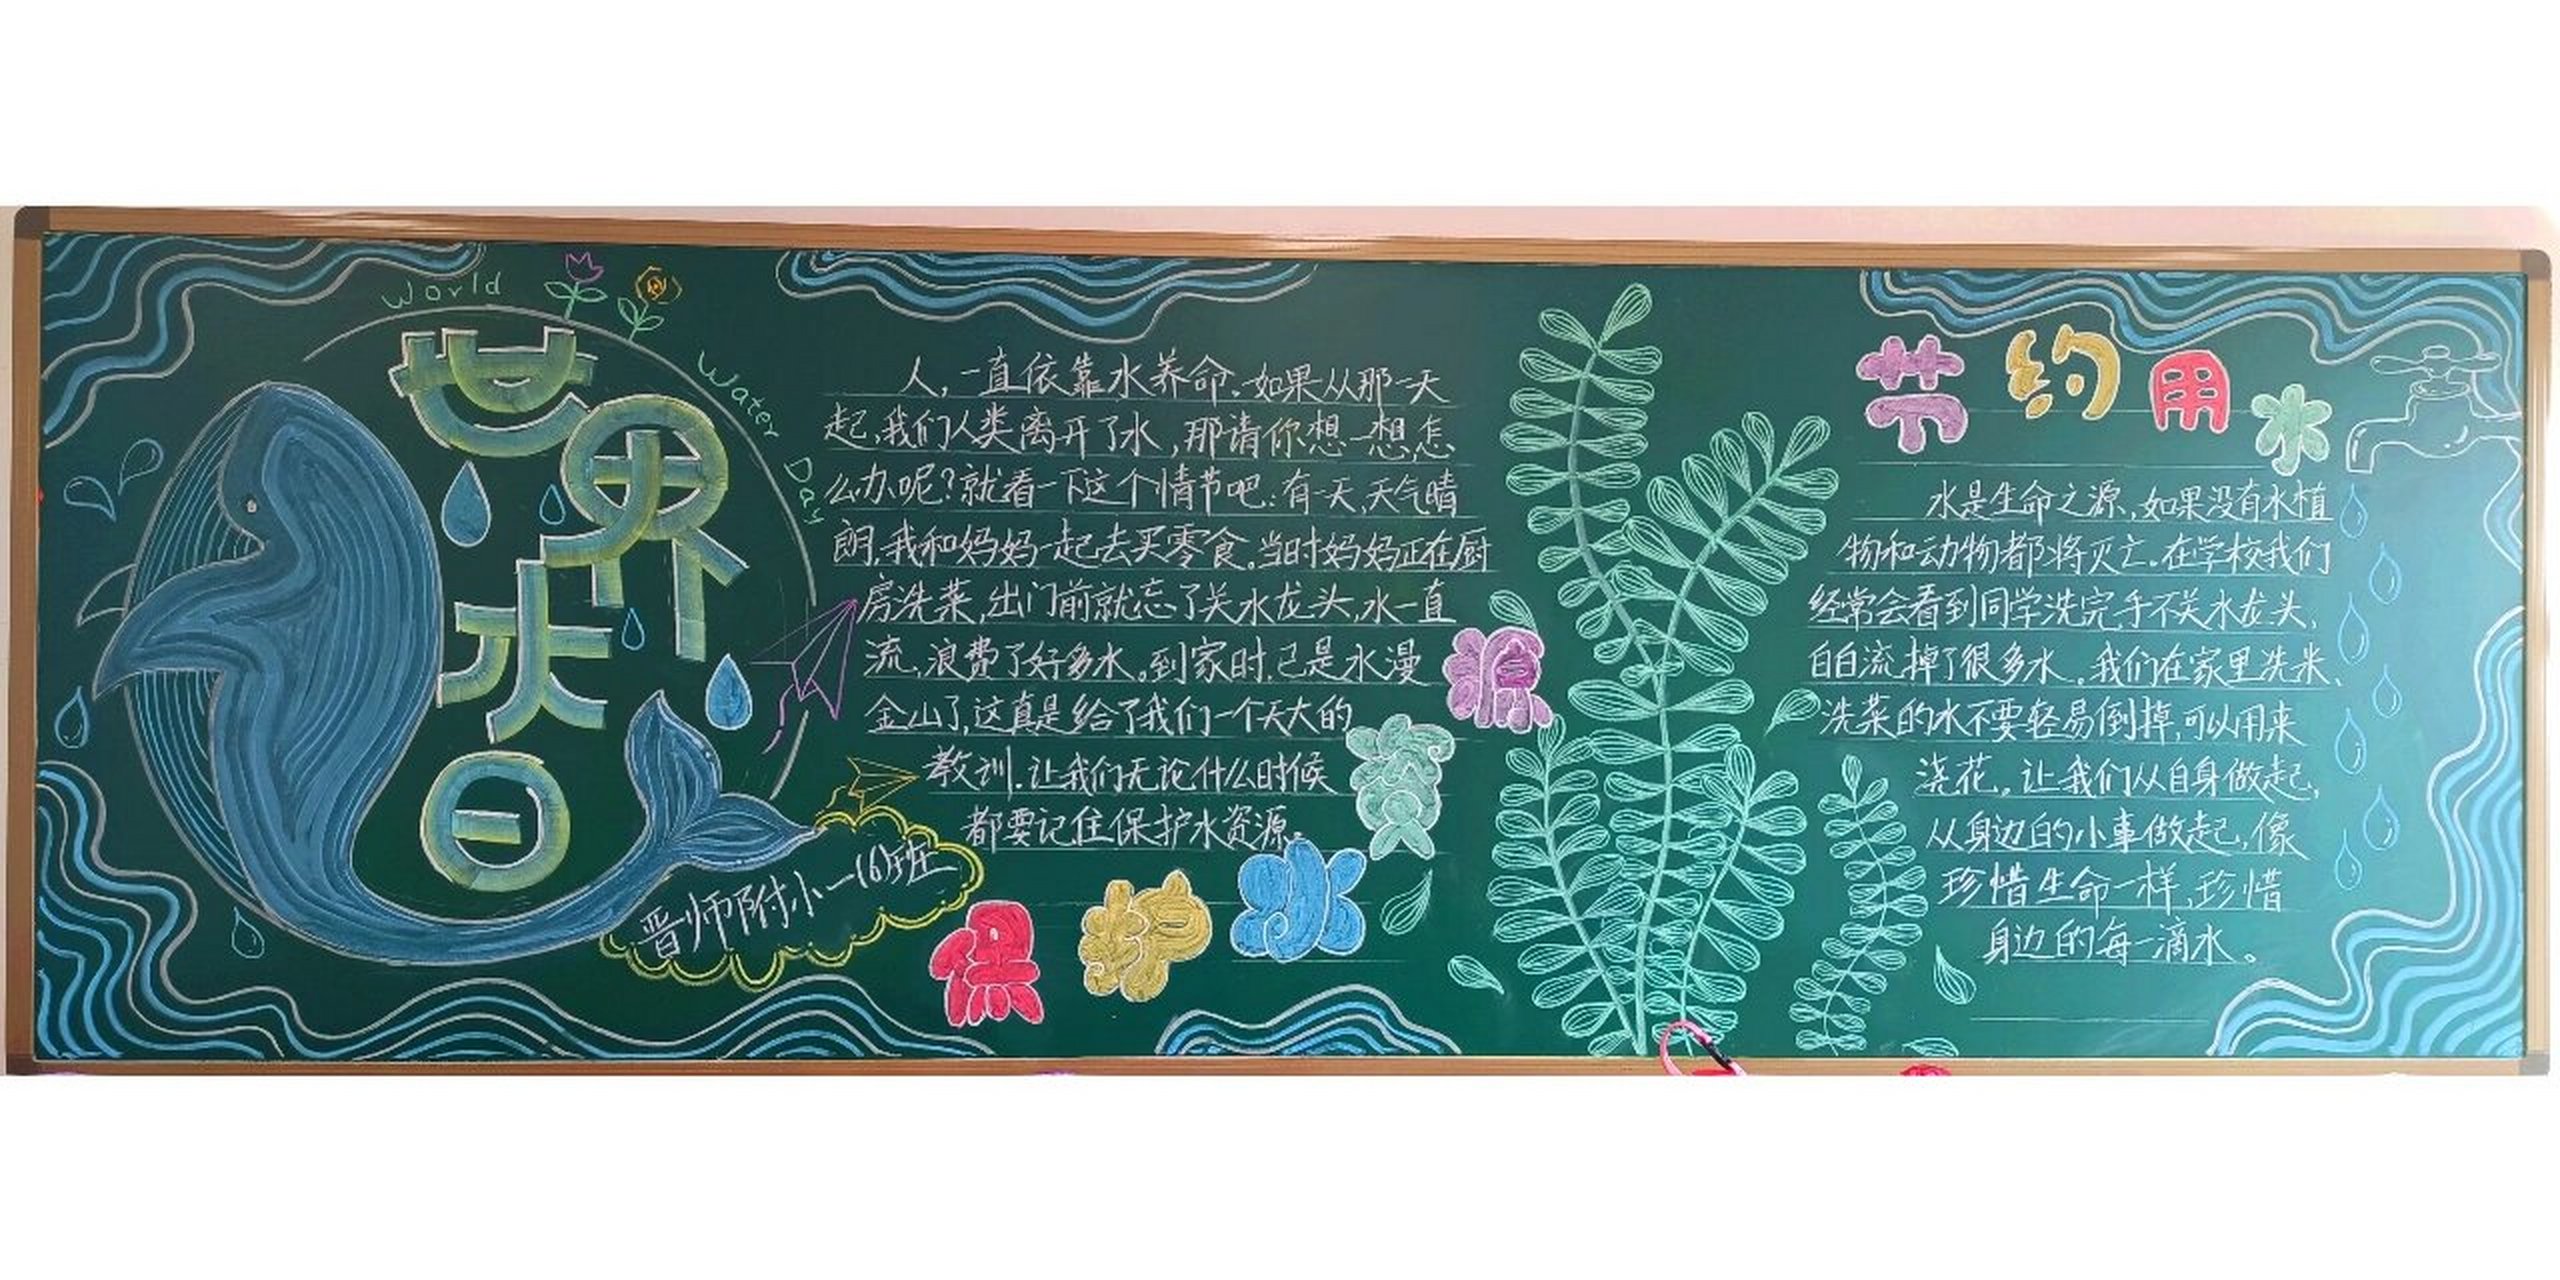 World
Water
Day
世界水日
人，一直依靠水养命。如果从那一天
起，我们人类离开了水，那请你想一想，怎
么办呢？就看一下这个情节吧：有一天，天气晴
朗，我和妈妈一起去买零食。当时妈妈正在厨
房洗菜，出门前就忘了关水龙头，水一直
流，浪费了好多水。到家时，已是水漫
金山了，这真是给了我们一个天大的
教训。让我们无论什么时候
都要记住保护水资源。
晋师附小一(6)班
保护水资源
节约用水
水是生命之源，如果没有水植
物和动物都将灭亡。在学校我们
经常会看到同学洗完手不关水龙头，
白白流掉了很多水。我们在家里洗米、
洗菜的水不要轻易倒掉，可以用来
浇花。让我们从自身做起，
从身边的小事做起，像
珍惜生命一样，珍惜
身边的每一滴水。